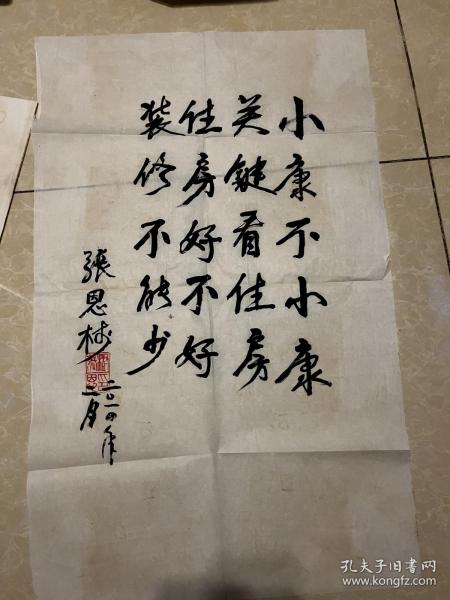 小康不小康
关键看住房
住房好不好
装修不能少
张恩树
二〇一〇年
二月
孔夫子旧书网
www.kongfz.com